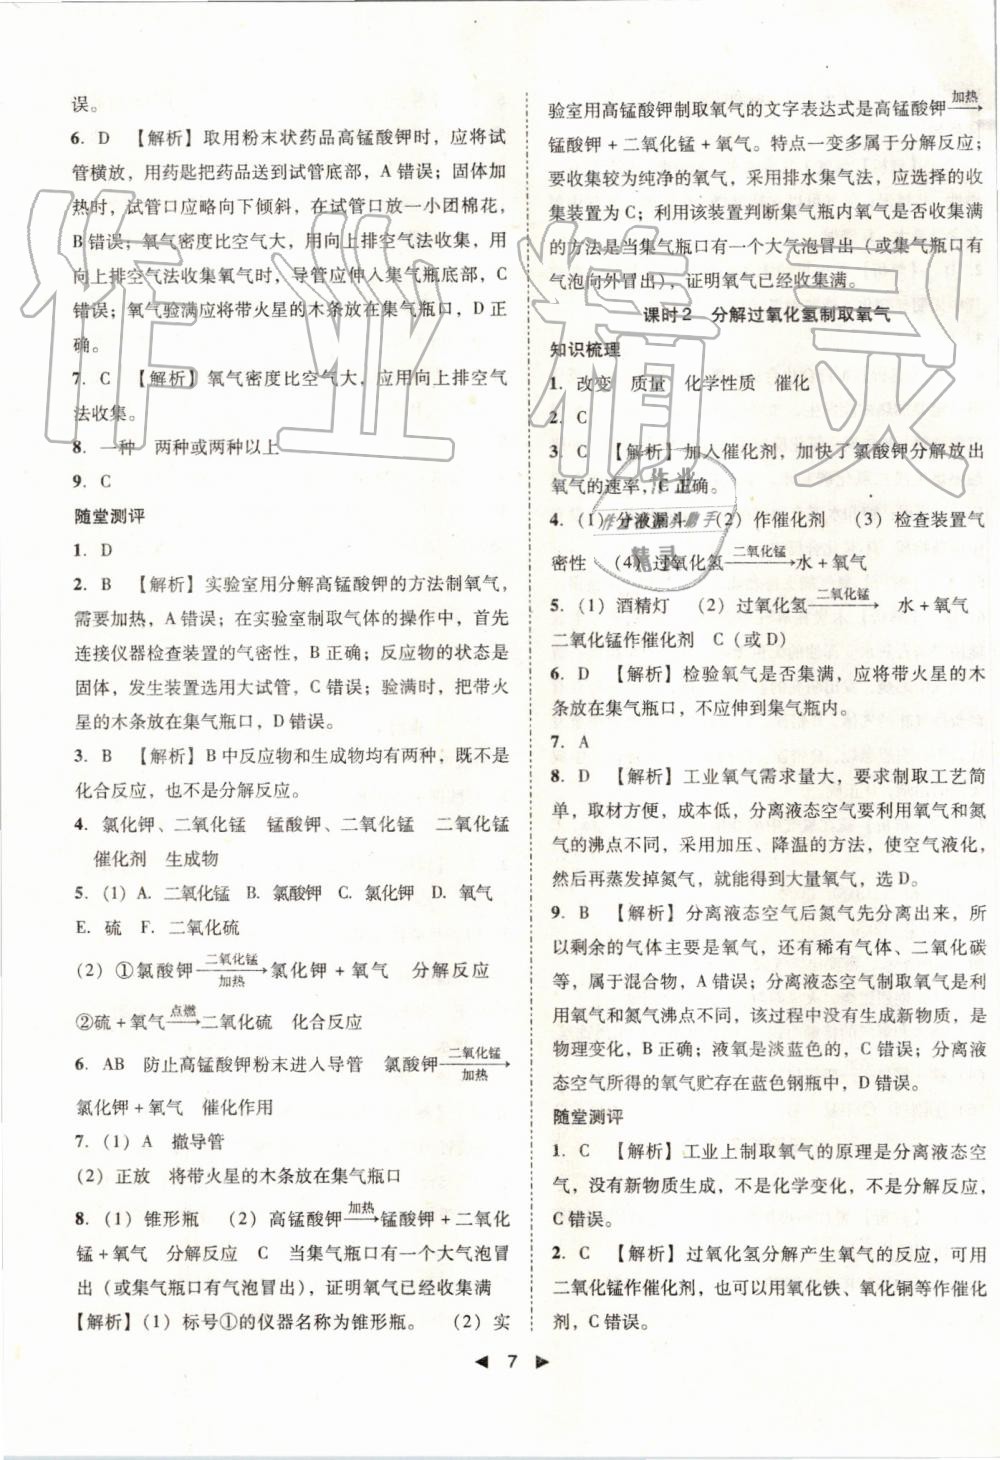 误。
6. D 【解析】取用粉末状药品高锰酸钾时，应将试
管横放，用药匙把药品送到试管底部，A错误；固体加
热时，试管口应略向下倾斜，在试管口放一小团棉花，
B错误；氧气密度比空气大，用向上排空气法收集，用
向上排空气法收集氧气时，导管应伸入集气瓶底部，C
错误；氧气验满应将带火星的木条放在集气瓶口，D正
确。
7. C 【解析】氧气密度比空气大，应用向上排空气
法收集。
8. 一种 两种或两种以上
9. C
随堂测评
1. D
2. B 【解析】实验室用分解高锰酸钾的方法制氧气，
需要加热，A错误；在实验室制取气体的操作中，首先
连接仪器检查装置的气密性，B正确；反应物的状态是
固体，发生装置选用大试管，C错误；验满时，把带火
星的木条放在集气瓶口，D错误。
3. B 【解析】B中反应物和生成物均有两种，既不是
化合反应，也不是分解反应。
4. 氯化钾、二氧化锰 锰酸钾、二氧化锰 二氧化锰
催化剂 生成物
5. (1) A. 二氧化锰 B. 氯酸钾 C. 氯化钾 D. 氧气
E. 硫 F. 二氧化硫
(2) ①氯酸钾 二氧化锰/加热→ 氯化钾+氧气 分解反应
②硫+氧气 点燃→ 二氧化硫 化合反应
6. AB 防止高锰酸钾粉末进入导管 氯酸钾 二氧化锰/加热→
氯化钾+氧气 催化作用
7. (1) A 撤导管
(2) 正放 将带火星的木条放在集气瓶口
8. (1) 锥形瓶 (2) 高锰酸钾 加热→ 锰酸钾+二氧化
锰+氧气 分解反应 C 当集气瓶口有一个大气泡冒
出（或集气瓶口有气泡冒出），证明氧气已经收集满
【解析】(1) 标号①的仪器名称为锥形瓶。 (2) 实
验室用高锰酸钾制取氧气的文字表达式是高锰酸钾 加热→
锰酸钾+二氧化锰+氧气。特点一变多属于分解反应；
要收集较为纯净的氧气，采用排水集气法，应选择的收
集装置为C；利用该装置判断集气瓶内氧气是否收集满
的方法是当集气瓶口有一个大气泡冒出（或集气瓶口有
气泡向外冒出），证明氧气已经收集满。
课时2 分解过氧化氢制取氧气
知识梳理
1. 改变 质量 化学性质 催化
2. C
3. C 【解析】加入催化剂，加快了氯酸钾分解放出
氧气的速率，C正确。
4. (1) 分液漏斗 (2) 作催化剂 (3) 检查装置气
密性 (4) 过氧化氢 二氧化锰→ 水+氧气
5. (1) 酒精灯 (2) 过氧化氢 二氧化锰→ 水+氧气
二氧化锰作催化剂 C（或D）
6. D 【解析】检验氧气是否集满，应将带火星的木
条放在集气瓶口，不应伸到集气瓶内。
7. A
8. D 【解析】工业氧气需求量大，要求制取工艺简
单，取材方便，成本低，分离液态空气要利用氧气和氮
气的沸点不同，采用加压、降温的方法，使空气液化，
然后再蒸发掉氮气，就能得到大量氧气，选D。
9. B 【解析】分离液态空气后氮气先分离出来，所
以剩余的气体主要是氧气，还有稀有气体、二氧化碳
等，属于混合物，A错误；分离液态空气制取氧气是利
用氧气和氮气沸点不同，该过程中没有生成新物质，是
物理变化，B正确；液氧是淡蓝色的，C错误；分离液
态空气所得的氧气贮存在蓝色钢瓶中，D错误。
随堂测评
1. C 【解析】工业上制取氧气的原理是分离液态空
气，没有新物质生成，不是化学变化，不是分解反应，
C错误。
2. C 【解析】过氧化氢分解产生氧气的反应，可用
二氧化锰作催化剂，也可以用氧化铁、氧化铜等作催化
剂，C错误。
7
作业精灵
作业
精灵